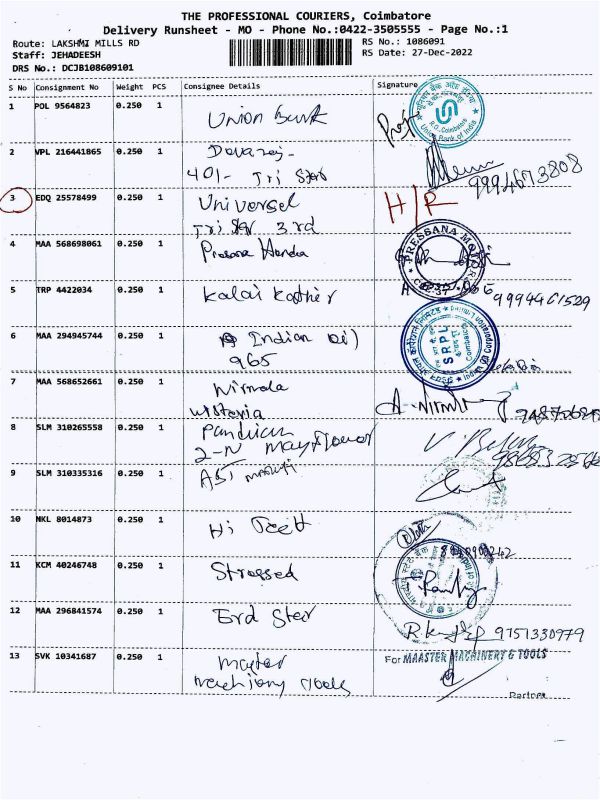 THE PROFESSIONAL COURIERS, Coimbatore
Delivery Runsheet - MO - Phone No.:0422-3505555 - Page No.:1
Route: LAKSHMI MILLS RD RS No.: 1086091
Staff: JEHADEESH RS Date: 27-Dec-2022
DRS No.: DCJB108609101
S No Consignment No Weight PCS Consignee Details Signature
1 POL 9564823 0.250 1 Union Bank
2 VPL 216441865 0.250 1 Devaraj-
401- Tri Star 9994673808
3 EDQ 25578499 0.250 1 Universel H/R
Tri Star 3rd
4 MAA 568698061 0.250 1 Prasana Honda PRESSANA MOTORS
5 TRP 4422034 0.250 1 Kalai Kathir 9994461529
6 MAA 294945744 0.250 1 Indian Oil SRPL
965
7 MAA 568652661 0.250 1 Nirmala A. Nirmla
Wisteria
8 SLM 310265558 0.250 1 Pandian
2-N Mayflower
9 SLM 310335316 0.250 1 AST Maruti
10 NKL 8014873 0.250 1 Hi Teett
11 KCM 40246748 0.250 1 Stressed
12 MAA 296841574 0.250 1 Erd Ster 9751330979
13 SVK 10341687 0.250 1 Master For MAASTER MACHINERY & TOOLS
Machinery Tools
Partner